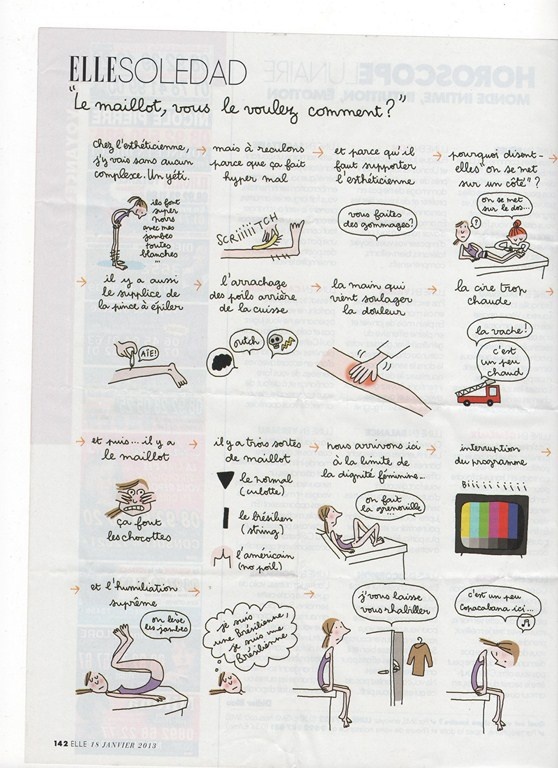 ELLESOLEDAD
HOROSCOPE LUNAIRE
MONDE INTIME, INTUITION, ÉMOTION
"Le maillot, vous le voulez comment ?"
chez l'esthéticienne,
j'y vais sans aucun
complexe. Un yéti.
ils font
super
noirs
avec mes
jambes
toutes
blanches
...
mais à reculons
parce que ça fait
hyper mal
SCRIIIIITCH
et parce qu'il
faut supporter
l'esthéticienne
vous faites
des gommages?
pourquoi disent-
elles "on se met
sur un côté"?
?
on se met
sur le dos...
il y a aussi
le supplice de
la pince à épiler
AÏE!
l'arrachage
des poils arrière
de la cuisse
outch
la main qui
vient soulager
la douleur
la cire trop
chaude
la vache!
c'est
un peu
chaud
et puis... il y a
le maillot
ça fout
les chocottes
il y a trois sortes
de maillot
le normal
(culotte)
le brésilien
(string)
l'américain
(no poil)
nous arrivons ici
à la limite de
la dignité féminine...
on fait
la grenouille
interruption
du programme
Biiiiiiiii
et l'humiliation
suprême
on lève
les jambes
je suis
une brésilienne,
je suis une
Brésilienne
j'vous laisse
vous rhabiller
c'est un peu
Copacabana ici...
142 ELLE 18 JANVIER 2013